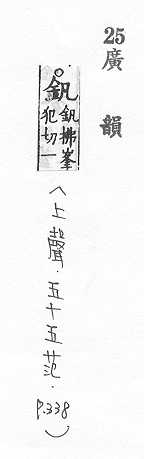 25
廣韻
釩釩拂峯
犯切一
(上聲·五十五范·P.338)